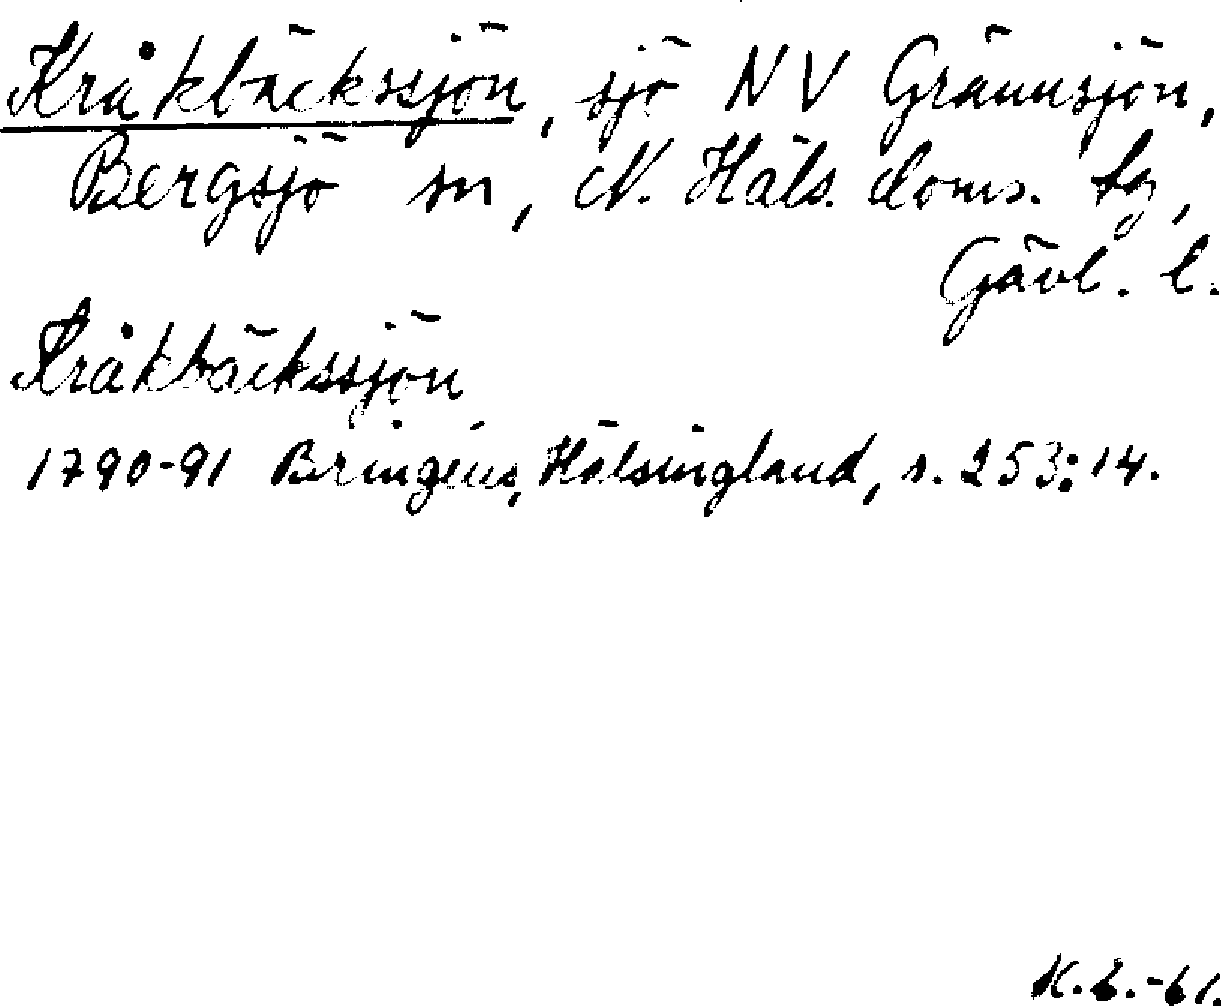 Kråkbäckssjön, sjö NV Grännsjön,
Bergsjö sn, N. Häls. doms. tg,
Gävl. l.
Kråkbäckssjön
1790-91 Bringéus, Hälsingland, s. 253:14.